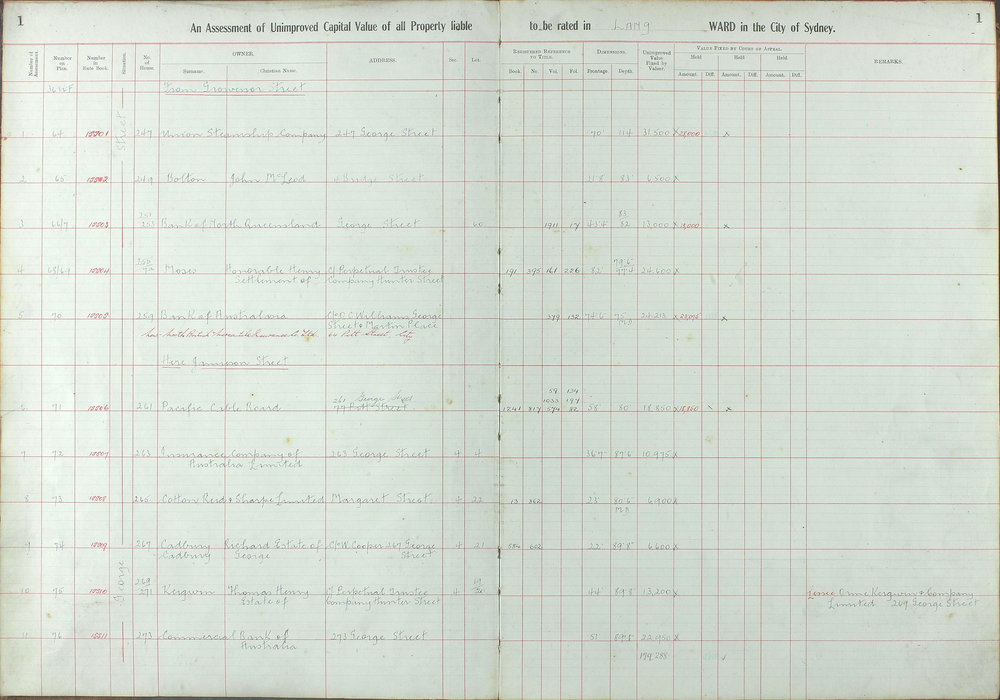 1
An Assessment of Unimproved Capital Value of all Property liable to be rated in Lang WARD in the City of Sydney.
1
Number of Assessment.
Number on Plan.
Number in Rate Book.
Situation.
No. of House.
OWNER.
Surname.
Christian Name.
ADDRESS.
Sec.
Lot.
Registered Reference to Title.
Book. No. Vol. Fol.
Dimensions.
Frontage. Depth.
Unimproved Value Fixed by Valuer.
Value Fixed by Court of Appeal.
Held Held Held
Amount. Diff. Amount. Diff. Amount. Diff.
REMARKS.
George Street
From Grosvenor Street
1 64 247 Union Steamship Company 247 George Street 70' 114 31,500 x x
2 65 249 Bolton John McLeod 4 Bridge Street 83' 6,500 x
3 66/7 251 253 Bank of North Queensland George Street 60 1911 17 43'4 83 82 13,000 x 13,000 x
4 68/69 Moses Honorable Henry C/ Perpetual Trustee 191 395 161 226 82' 79'6" 24,600 x
Settlement of Company Hunter Street
5 70 259 Bank of Australasia C/o O C Williams George 379 132 74'6 75' x
Street & Martin Place M.D
Pitt Street, City
Here Jamieson Street
59 134
261 George Street 1033 197
6 71 261 Pacific Cable Board 77 Pitt Street 1241 817 574 82 58' 80' 18,850 x 18,850 x
7 72 263 Insurance Company of 263 George Street 4 4 36'7 87'6 10,975 x
Australia Limited
8 73 265 Cotton Reid & Sharpe Limited Margaret Street 4 22 13 362 23' 80'6" 6,900 x
M.D
9 74 267 Cadbury Richard Estate of C/o W Cooper 267 George 4 21 584 602 22' 89'8" 6,600 x
Cadbury George Street
10 75 269 271 Kerguin Thomas Henry C/ Perpetual Trustee 4 19 20 44' 89'8 13,200 x Lessee Orme Kerguin & Company
Estate of Company Hunter Street Limited 269 George Street
11 76 273 Commercial Bank of 273 George Street 51' 89'8" 22,950 x
Australia
179,288